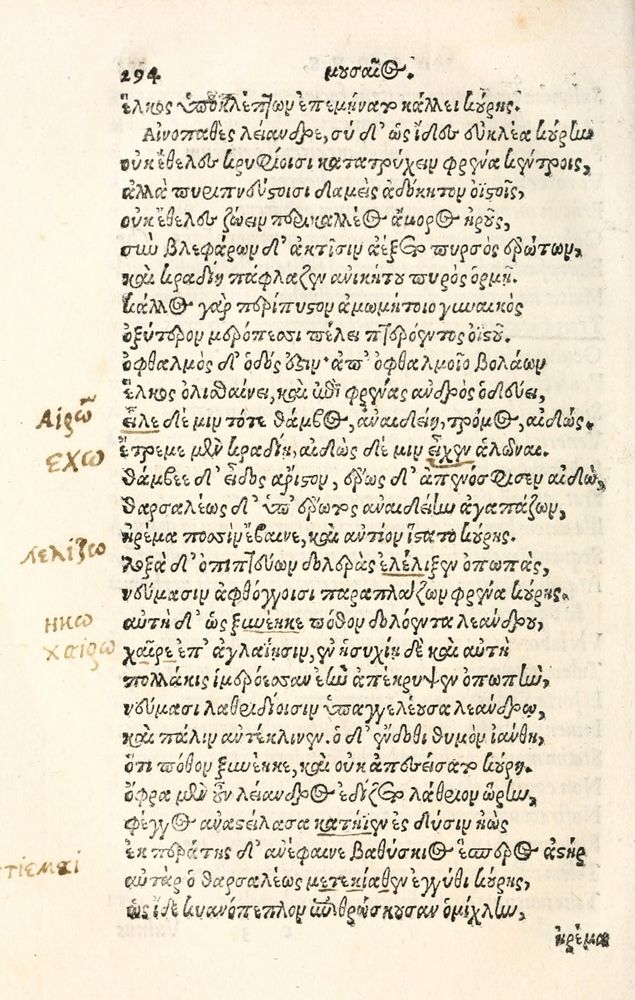 294 μουσαῖος.
ἕλκος ὑποκλέπτων ἐπεμήνατο κάλλει κούρης.
Αἰνοπαθὲς λέιανδρε, σὺ δ' ὡς ἴδες εὐκλέα κούρην
οὐκ ἔθελες κρυφίοισι κατατρύχειν φρένα κέντροις,
ἀλλὰ πυριπνεύστοισι δαμεὶς ἀδόκητον ὀϊστοῖς,
οὐκ ἔθελες ζώειν περικαλλέος ἄμορος ἡροῦς,
σὺν βλεφάρων δ' ἀκτῖσιν ἀέξετο πυρσὸς ἐρώτων,
καὶ κραδίη πάφλαζεν ἀνικήτου πυρὸς ὁρμῇ.
κάλλος γὰρ περίπυστον ἀμωμήτοιο γυναικὸς
ὀξύτερον μερόπεσσι πέλει πτερόεντος ὀϊστοῦ.
ὀφθαλμὸς δ' ὁδός ἐστιν· ἀπ' ὀφθαλμοῖο βολάων
ἕλκος ὀλισθαίνει, καὶ ἐπὶ φρένας ἀνδρὸς ὁδεύει,
Αἱρῶ
εἷλε δέ μιν τότε θάμβος, ἀναιδείη, τρόμος, αἰδώς.
ἔτρεμε μὲν κραδίη, αἰδὼς δέ μιν εἶχεν ἁλῶναι.
ἔχω
θάμβεε δ' εἶδος ἄριστον, ἔρως δ' ἀπενόσφισεν αἰδῶ,
θαρσαλέως δ' ὑπ' ἔρωτος ἀναιδείην ἀγαπάζων,
ἠρέμα ποσσὶν ἔβαινε, καὶ ἀντίον ἵστατο κούρης.
λελίζω
λοξὰ δ' ὀπιπτεύων δολερὰς ἐλέλιξεν ὀπωπὰς,
νεύμασιν ἀφθόγγοισι παραπλάζων φρένα κούρης.
ηκω
αὐτὴ δ' ὡς ξυνέηκε πόθον δολόεντα λεάνδρου,
χαίρω
χαῖρε ἐπ' ἀγλαΐῃσιν, ἐν ἡσυχίῃ δὲ καὶ αὐτὴ
πολλάκις ἱμερόεσσαν ἑὴν ἀπέκρυψεν ὀπωπὴν,
νεύμασι λαθριδίοισιν ὑπαγγέλλουσα λεάνδρῳ,
καὶ πάλιν ἀντέκλινεν. ὁ δ' ἔνδοθι θυμὸν ἰάνθη,
ὅτι πόθον ξυνέηκε, καὶ οὐκ ἀπεσείσατο κούρη.
ὄφρα μὲν οὖν λέιανδρος ἐδίζετο λάθριον ὥρην,
φέγγος ἀναστείλασα κατήϊεν ἐς δύσιν ἠὼς
ἐκ περάτης δ' ἀνέφαινε βαθύσκιος ἕσπερος ἀστήρ
τιεμαι
αὐτὰρ ὁ θαρσαλέως μετεκίαθεν ἐγγύθι κούρης,
ὡς ἴδε κυανόπεπλον ἐπιθρώσκουσαν ὁμίχλην,
ἠρέμα